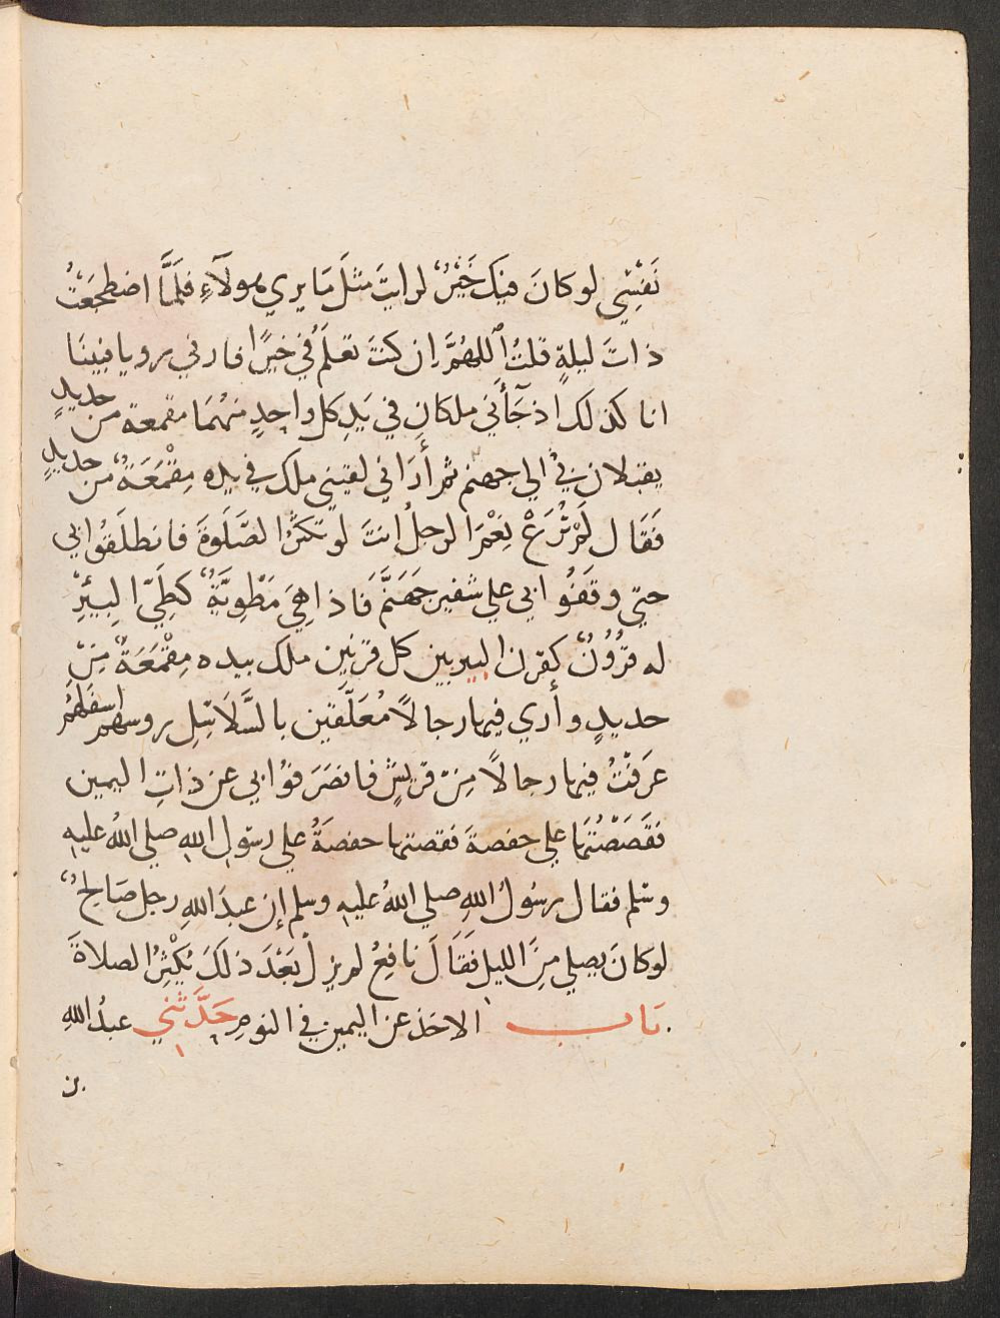 نَفْسِي لو كانَ فيكَ خَيْرٌ لرايتَ مثلَ مَا يري هولآءِ فلَمَّا اضطجَعْتُ
ذاتَ ليلةٍ قلتُ اَللهُمَّ ان كنتَ تعلَمُ فيّ خيرًا فارني رويا فبينَا
انا كذلك اذ جَآَني ملكانِ في يَدِ كل واحِدٍ منهُمَا مقمعة من حديدٍ
يقبلان بيْ الي جهنم ثم أُرَاني لقيني ملك في يده مِقْمَعَةٌ من حديدٍ
فَقَال لَمْ تُرَعْ نِعْمَ الرجلُ انتَ لو تكثرُ الصَّلَوةَ فانطلَقُوا بي
حتي وقَفُوا بي علي شفير جَهَنَّمَ فَاذا هِيَ مَطْوِيَّةٌ كطَيِّ البِيئْرِ
له قُرُونٌ كقرن البير بين كل قرنين ملك بيده مِقْمَعَةٌ مِنْ
حديدٍ وأري فيها رجالاً مُعَلَّقين بالسَّلَاسِلِ روسهم اسفلهُم
عرَفْتُ فيها رجالاً مِنْ قريشٍ فانصَرَفوْا بي عن ذاتِ اليمين
فقَصَصْتُهَا علي حفصةَ فقصتها حفصَةُ علي رسول الله صلي اللهُ عليهِ
وسلم فقال رسُولُ اللهِ صلي اللهُ عليهِ وسلم إن عبدَ اللهِ رجل صَالِحٌ
لو كانَ يصلي مِنَ الليل فَقَالَ نافِعُ لم يزلْ بَعْدَ ذلكَ يُكْثِرُ الصلاةَ
بَاب الاخذ عن اليمين في النومِ حَدَّثَني عبدُ اللهِ
بن